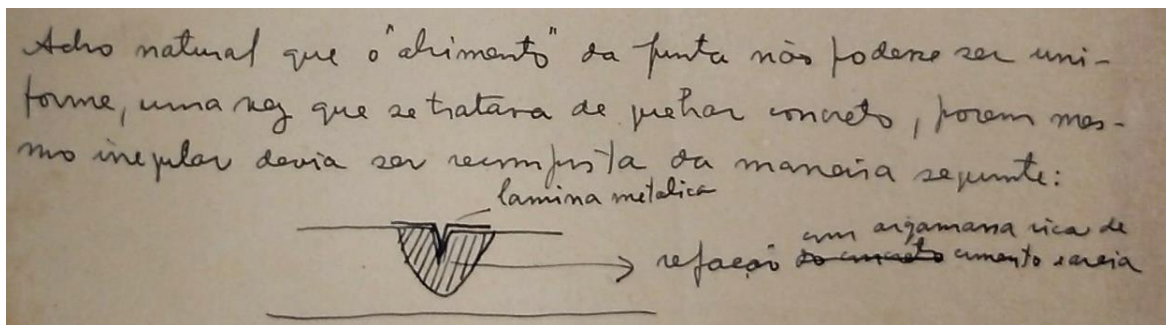 Acho natural que o "abrimento" da junta não podesse ser uni-
forme, uma vez que se tratava de quebrar concreto, porem mes-
mo irregular devia ser recomposta da maneira segunte:
lamina metalica
com argamassa rica de
refação do concreto cimento e areia